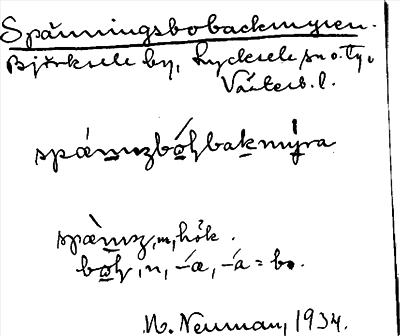 Spänningsbobackmyren.
Björksele by, Lycksele sn o. ty.
Västerb. l.
spánnızbo̲ɫbakmýra
spànnız, m, hök.
bo̲ɫ, n, -æ, -a = bo.
N. Neuman, 1934.